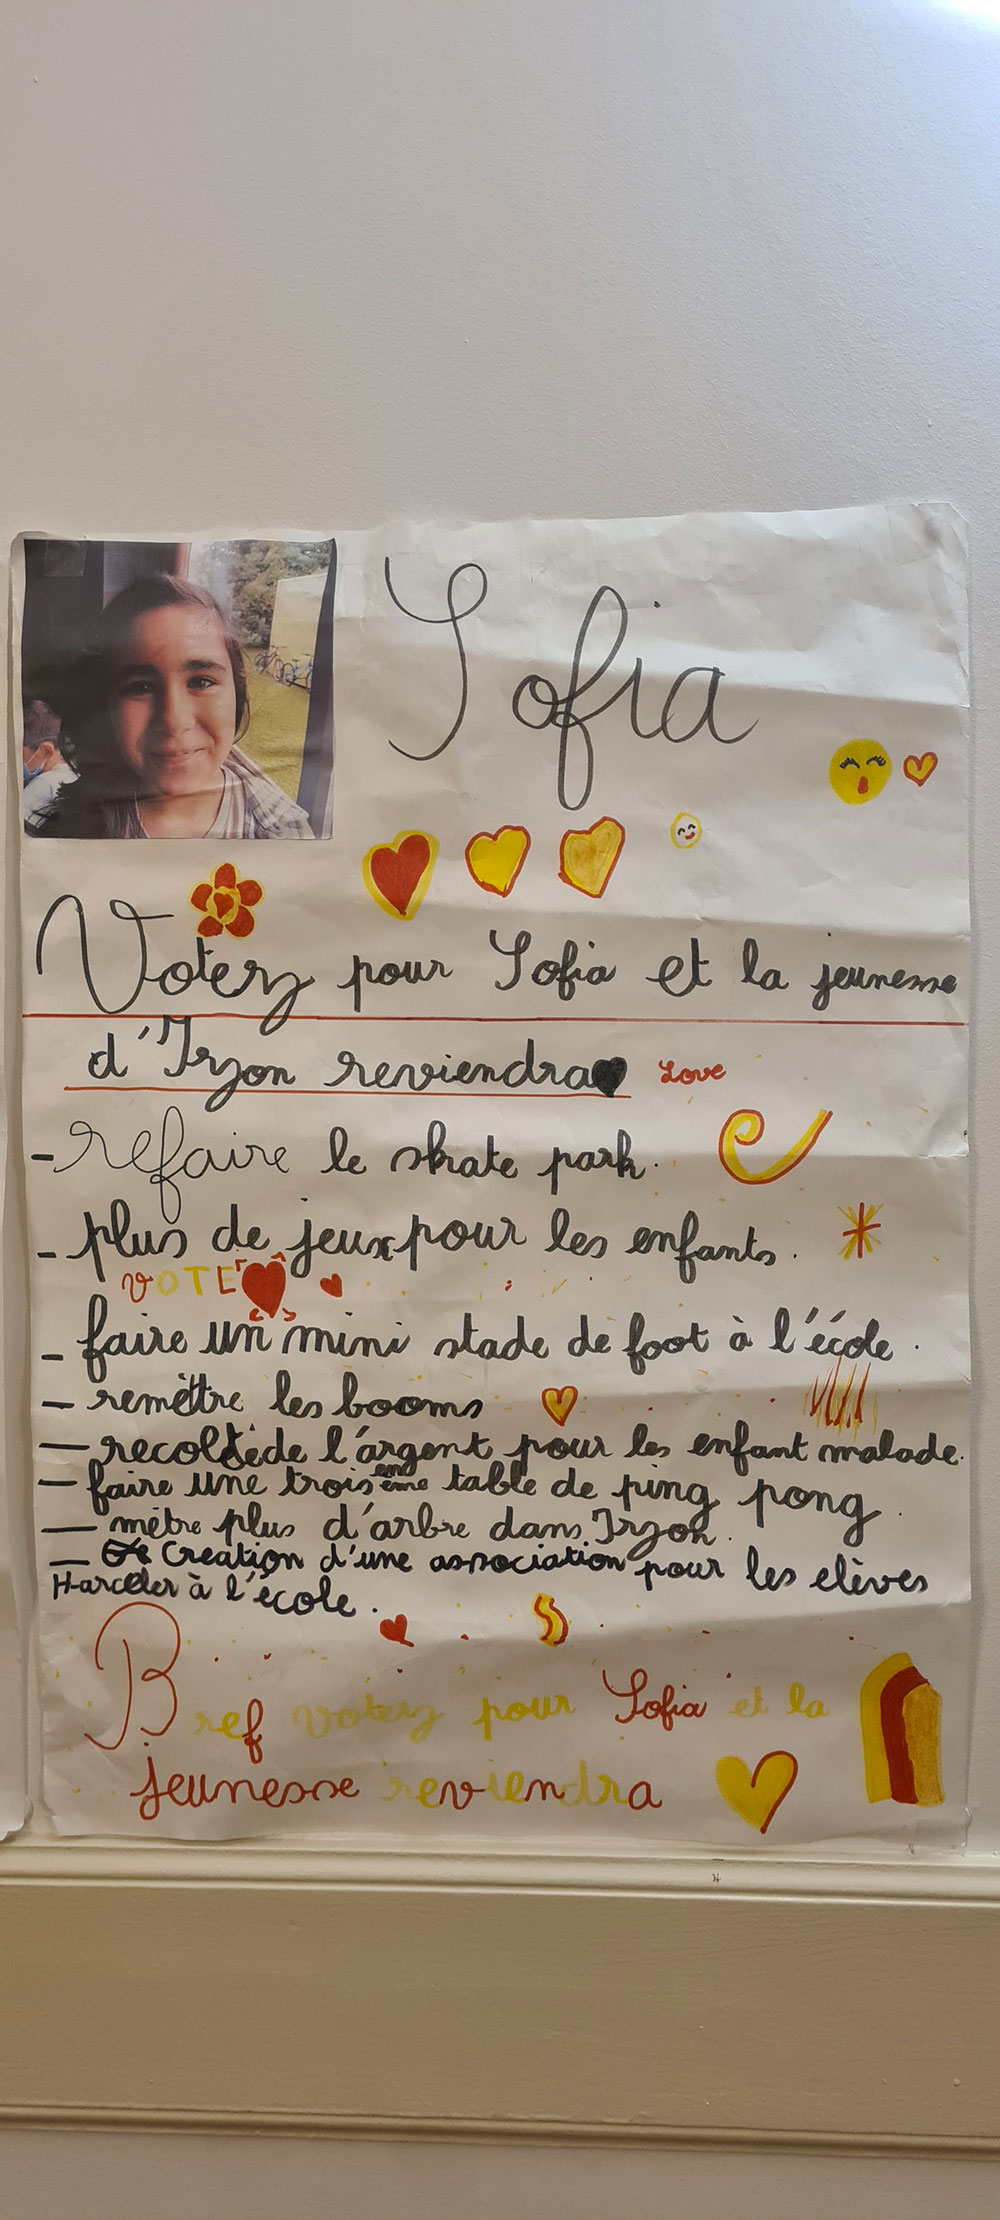 Sofia
Votez pour Sofia et la jeunesse
d'Izon reviendra Love
- refaire le skate park.
- plus de jeux pour les enfants.
VOTER
- faire un mini stade de foot à l'école.
- remèttre les booms
- recoltéde l'argent pour les enfant malade.
- faire une troisenème table de ping pong.
- mètre plus d'arbre dans Izon.
- Creation d'une association pour les elèves
Harceler à l'école.
Bref votez pour Sofia et la
jeunesse reviendra